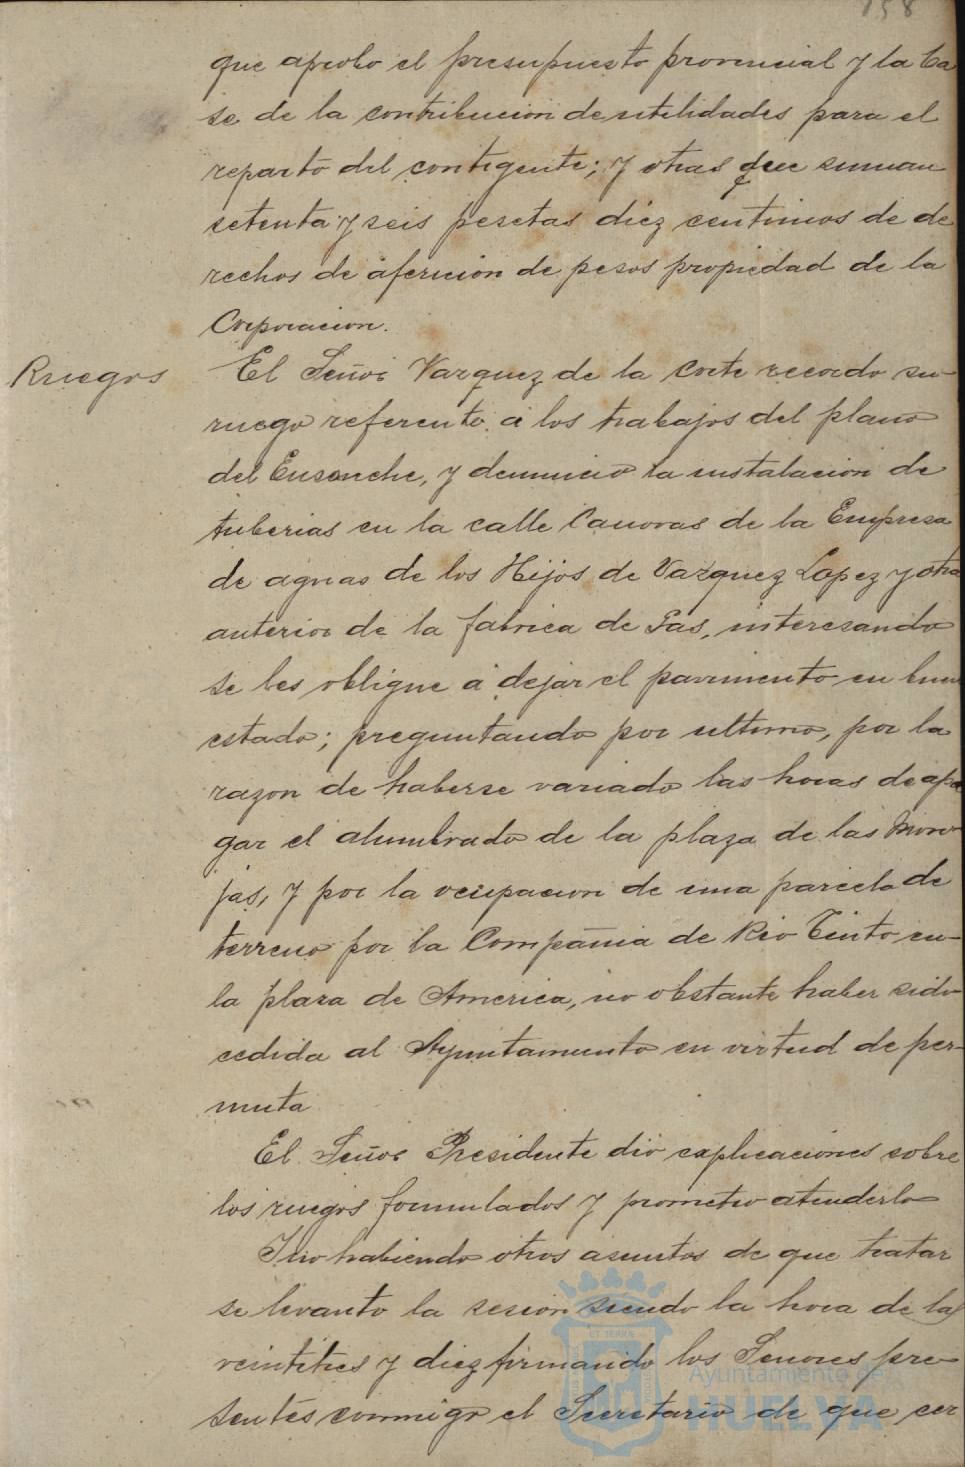 158
que aprobo el presupuesto provincial y la ba
se de la contribucion de utilidades para el
reparto del contigente; y otras que suman
setenta y seis pesetas diez centimos de de
rechos de afericion de pesos propiedad de la
Corporacion.
Ruegos
El Señor Vazquez de la Corte recordo su
ruego referente á los trabajos del plano
del Ensanche, y denunció la instalacion de
tuberias en la calle Canovas de la Empresa
de aguas de los Hijos de Vazquez Lopez y otra
anterior de la fabrica de Gas, interesando
se les obligue á dejar el pavimento en buen
estado; preguntando por ultimo, por la
razon de haberse variado las horas de apa
gar el alumbrado de la plaza de las Mon
jas, y por la ocupacion de una parcela de
terreno por la Compañia de Rio Tinto en
la plaza de America, no obstante haber sido
cedida al Ayuntamiento en virtud de per-
muta
El Señor Presidente dió explicaciones sobre
los ruegos formulados y prometio atenderlo
Y no habiendo otros asuntos de que tratar
se levanto la sesion siendo la hora de las
veintitres y diez firmando los Señores pre-
sentes conmigo el Secretario de que cer
Ayuntamiento de
HUELVA